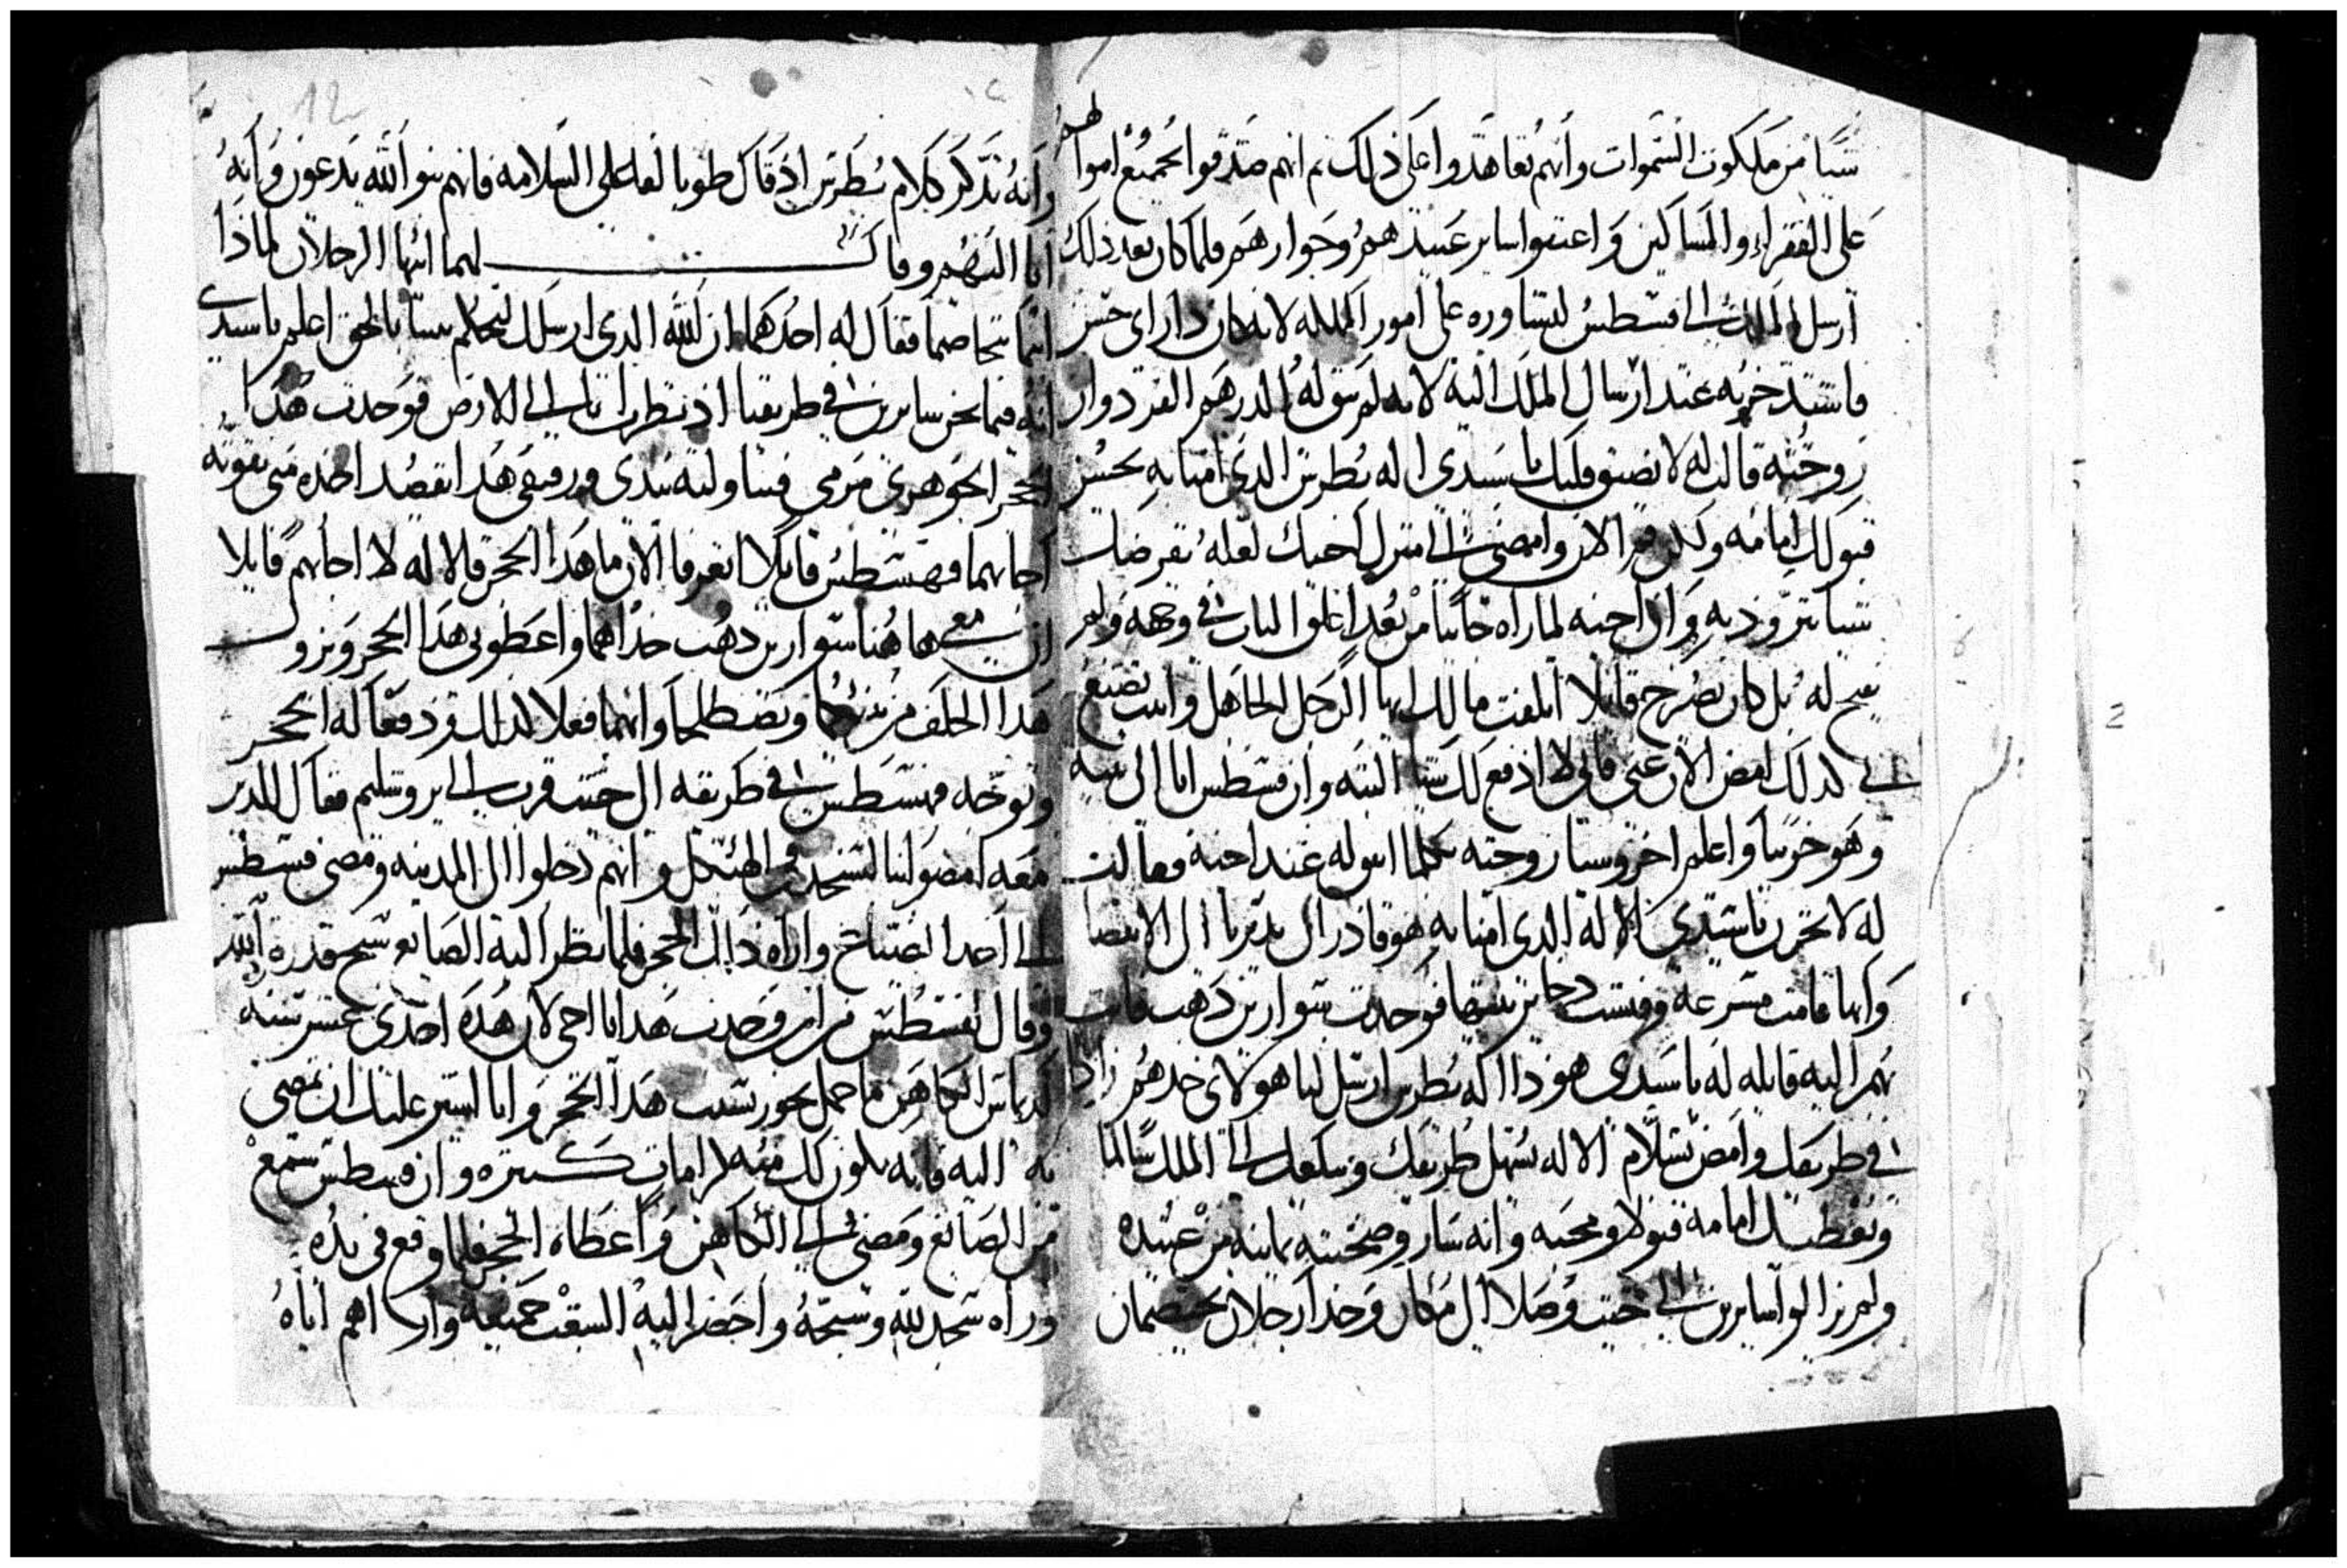 شيا من ملكوت السموات وأنهم تعاهدوا على ذلك ثم انهم صدقوا بجميع اموالهم
على الفقراء والمساكين واعتقوا ساير عبيدهم وجوارهم فلما كان بعد ذلك
ارسل الملك الى فسطس ليشاوره على امور المملكه لانه كان دا راى حسن
فاشتد حزنه عند ارسال الملك اليه لانه لم يبق له الدرهم الفرد وان
زوجته قالت له لا تضيق قلبك يا سيدى اله بطرس الدى امنا به يحسن
قبولك امامه ولكن قم الان وامضى الى منزل اخيك لعله يقرضك
شيا تتزود به وان اخيه لما راه جايبا من بعد اغلق الباب فى وجهه ولم
يفتح له بل كان يصرخ قايلا اتلفت مالك ايها الرجل الجاهل وانت تصنع
لى كدلك امض الان عنى فانى لا ادفع لك شيا البته وان فسطس اتا الى بيته
وهو حزينا واعلم اخروسيا زوجته بكلما اتفق له عند اخيه فقالت
له لا تحزن يا سيدى الاله الدى امنا به هو قادر ان يدبرنا الى الانقضا
وانها قامت مسرعة وفتشت دخاير بيتها فوجدت سوارين دهب فاتت
بهم اليه قايله له يا سيدى هودا اله بطرس ارسل لنا هولاى خدهم زادا
فى طريقك وامض بسلام الاله يسهل طريقك ويبلغك الى الملك سالما
ويعطيك امامه قبولا ومحبه وانه سار وصحبته تمانيه من عبيده
ولم يزالوا سايرين الى حيت وصلا الى مكان وجدا رجلان يختصمان
وانه تذكر كلام بطرس اذ قال طوبا لفاعلى السلامه فانهم بنوا الله يدعون وانه
اتا اليهم وقال لهما ايها الرجلان لماذا
انتما تتخاصما فقال له احدهما ان الله الدى ارسلك لتحكم بيننا بالحق اعلم يا سيدى
انه فيما نحن سايرين فى طريقنا اذ نظرت انا الى الارض فوجدت هذا
الحجر الجوهرى مرمى فتناولته بيدى ورفيقى هدا يقصد اخده منى بقوته
اجابهما فسطس قايلا اتعرفا الان ما هدا الحجر قالا له لا اجابهم قايلا
ان معى هاهنا سوارين دهب خداهما واعطونى هدا الحجر ويزول
هدا الخلف من بينكما وتصطلحا وانهما فعلا كدلك ودفعا له الحجر
وتوجه فسطس فى طريقه الى حيت قرب الى يروشليم فقال للدين
معه امضوا بنا لنسجد فى الهيكل وانهم دخلوا الى المدينه ومضى فسطس
الى احد الصياغ واراه دالك الحجر فلما نظر اليه الصايغ سبح قدرة الله
وقال لفسطس من اين وجدت هدا يا اخى لان هده احدى عشر سنه
الكاهن ما حمل بخور بسبب هدا الحجر وانا اشير عليك ان تمضى
به اليه فانه يكون لك منه كرامات كتيره وان فسطس سمع
من الصايغ ومضى الى الكاهن واعطاه الحجر فلما وقع فى يده
وراه سجد لله وسبحه واحضر اليه الشعب جميعه واراهم اياه